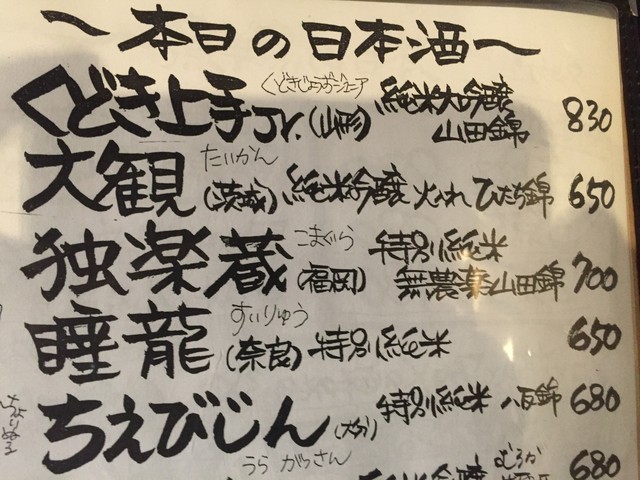 〜本日の日本酒〜
くどき上手Jr. くどきじょうずジュニア (山形) 純米大吟醸 山田錦 830
大観 たいかん (茨城) 純米吟醸 火入れ ひたち錦 650
独楽蔵 こまぐら (福岡) 特別純米 無農薬山田錦 700
睡龍 すいりゅう (奈良) 特別純米 650
ちえびじん (大分) 特別純米 八反錦 680
うら がっさん むろか 680